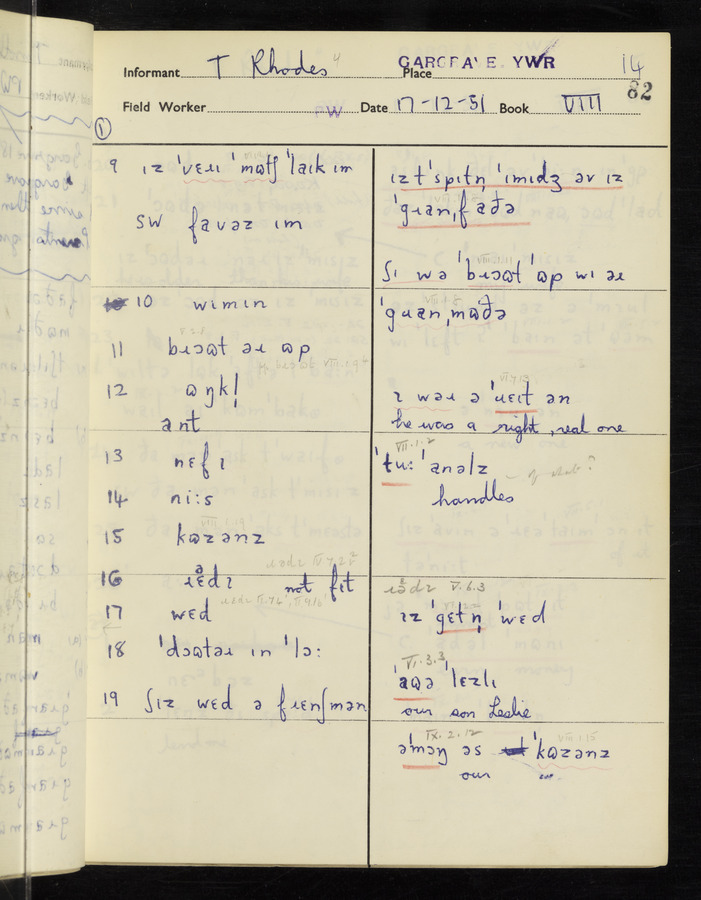 Informant T Rhodes Place GARGRAVE. YWR 14
82
Field Worker PW Date 17-12-51 Book VIII
1
9 ɪz ˈvɛɹɪ ˈmʊtʃ ˈlaɪk ɪm
sw favəz ɪm
10 wimin
11 bɹɔʊt əɹ ʊp
12 ʊŋkl
ant
13 nɛfɪ
14 ni:s
15 kʊzənz
16 ɹɛdɪ not fɪt
17 wɛd
18 ˈdɔʊtəɹ ɪn ˈlɔ:
19 ʃɪz wɛd ə fɹɛnʃmən
ɪz t ˈspɪtn̩ ˈɪmɪdʒ əv ɪz
ˈgɹanˌfaðə
ʃɪ wə ˈbɹɔʊt ˈʊp wɪ əɹ
ˈgɹanˌmʊðə
ɪ wəɹ ə ˈɹɛɪt ən
he was a right, real one
VII.1.2
ˈtu: ˈanəlz of what?
handles
V.6.3
ɪz ˈgɛtn̩ ˈwɛd
VI.3.3
ˈaʊə ˈlɛzlɪ
our son Leslie
IX.2.12 VIII.1.15
əˈməŋ əs ˈkʊzənz
our